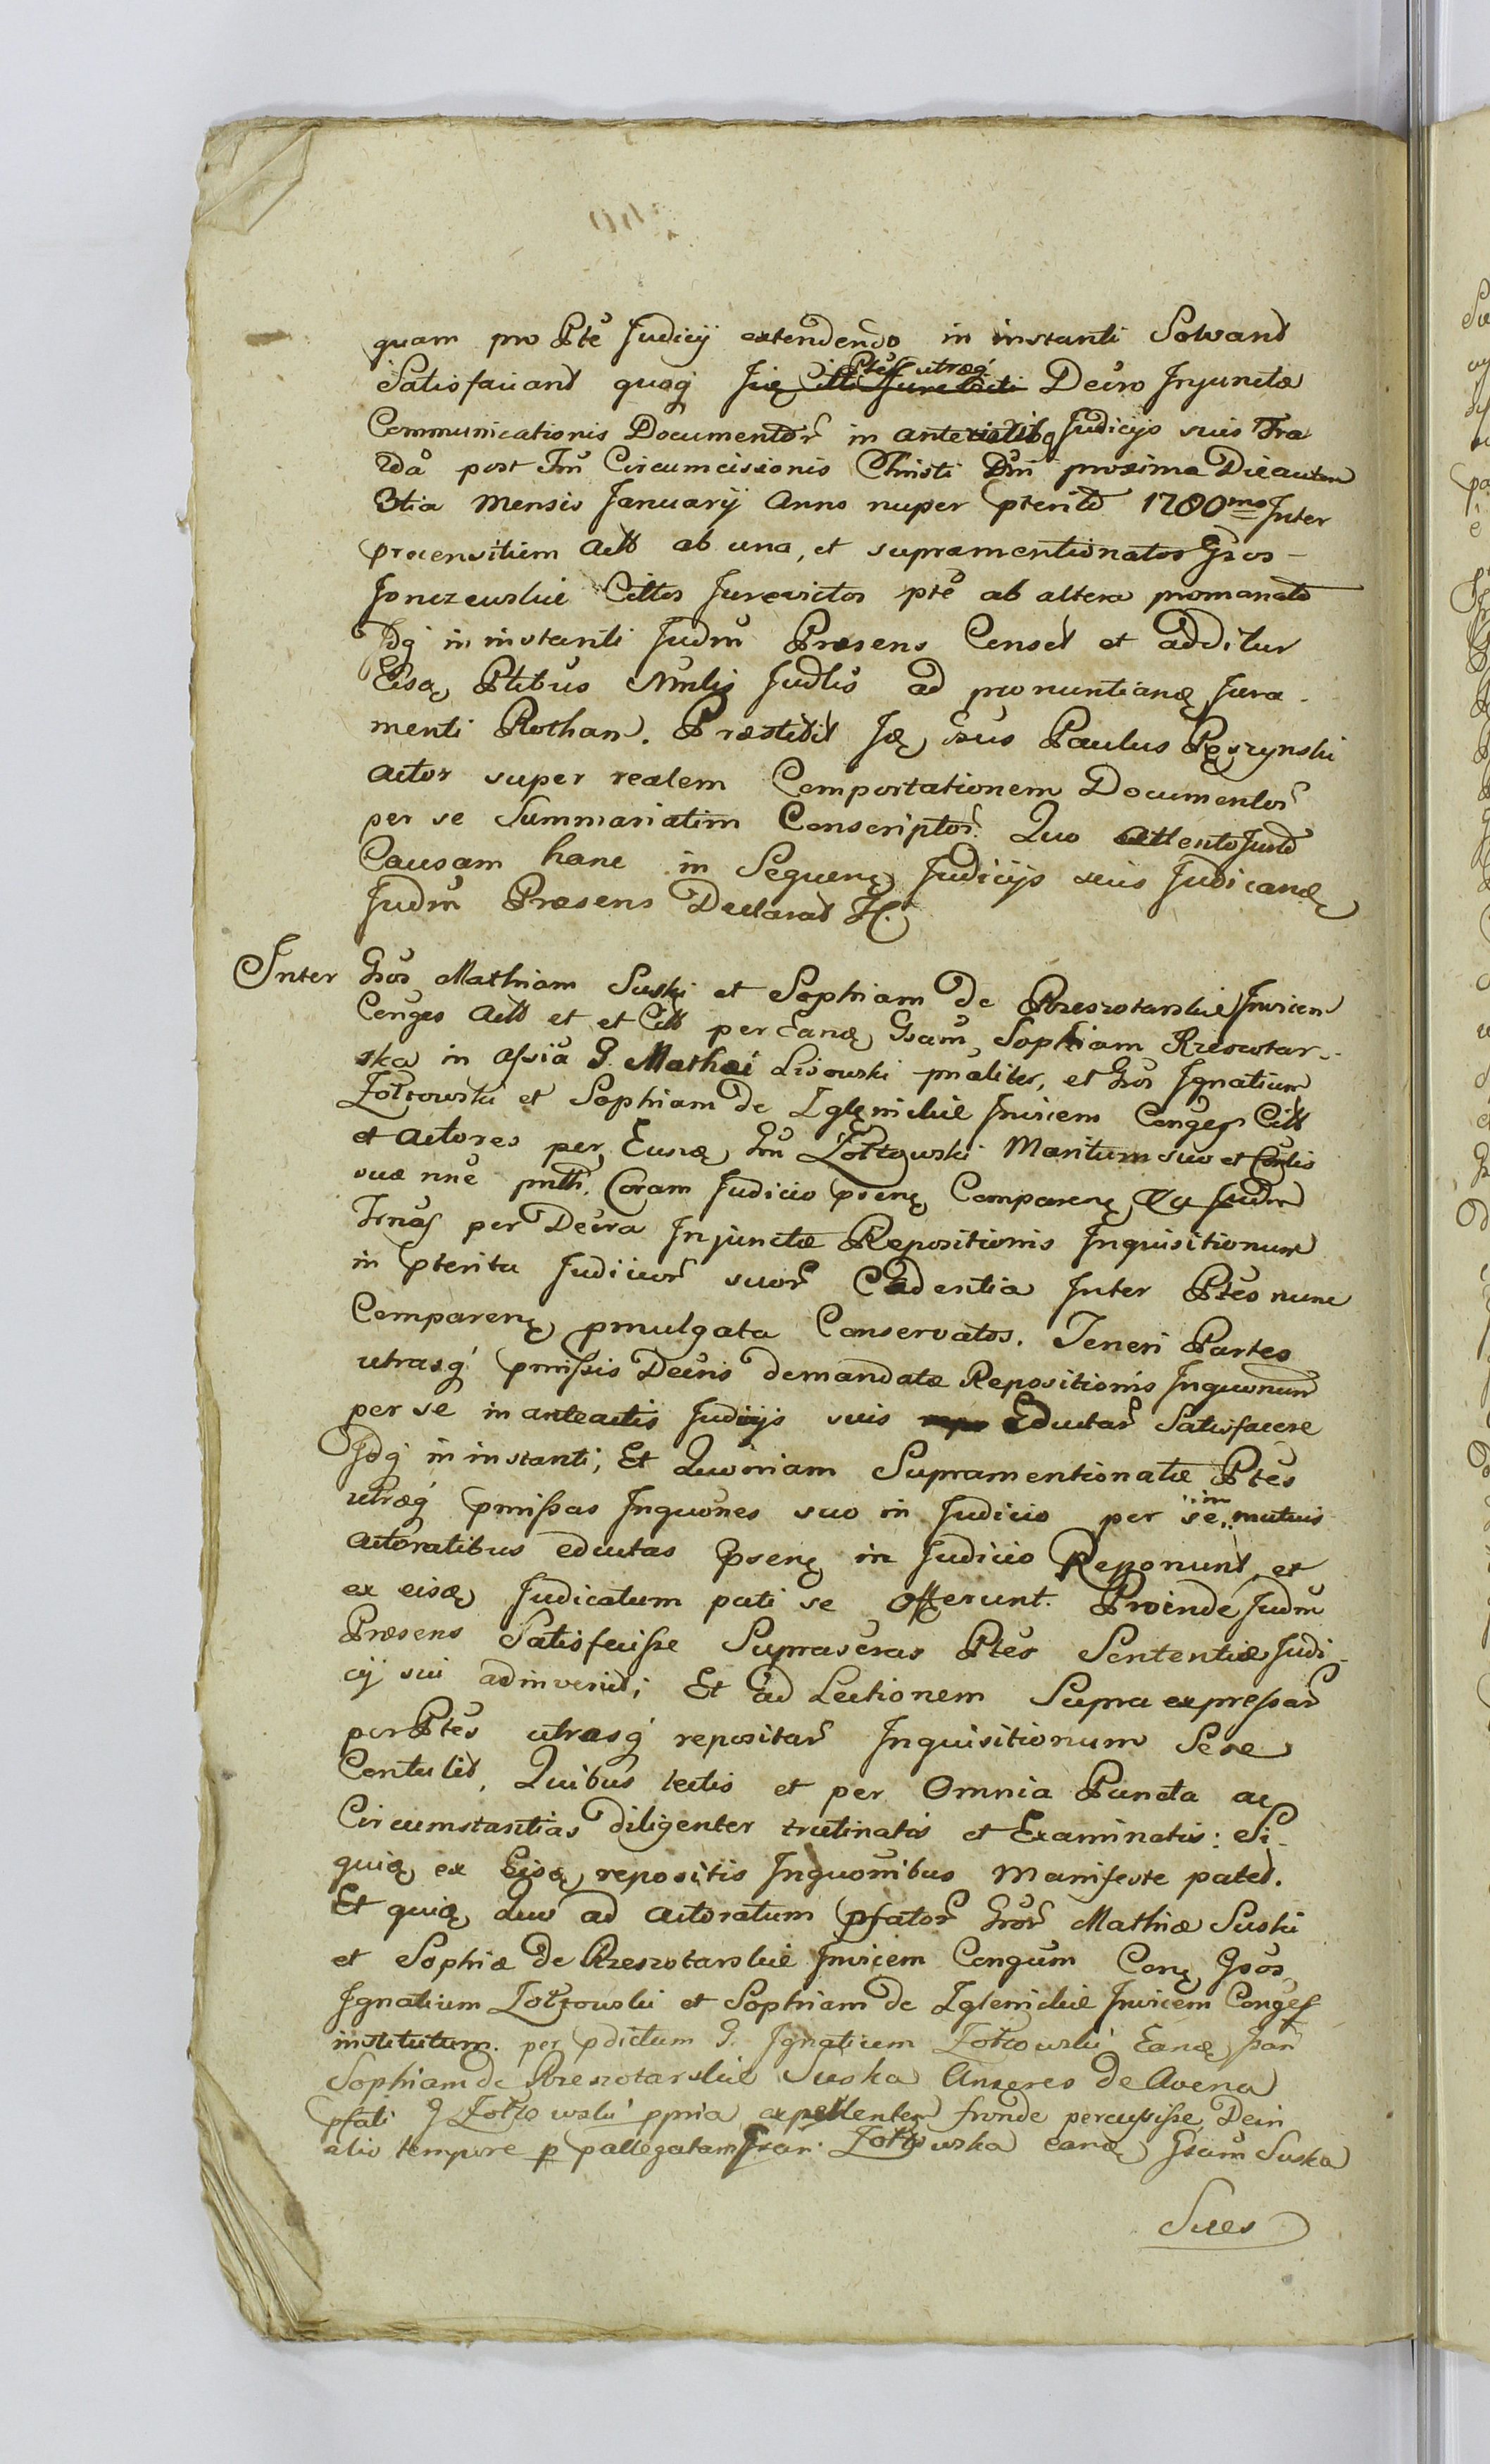 quam pro Pte Judicij extendendo in instanti Solvant
Satisfaciant quoq Ptes utræq Decro Injunctæ
Communicationis Documentor in Judicijs suis Fra
2da post Fm Circumcissionis Christi Dni proxima Die autem
3tia Mensis Januarij Anno nuper pterito 1780mo Inter
procensitum Actt ab una, et supramentionatos Gsos
Jonczewskie Cittos Jurevictos pte ab altera promanato
Idq in instanti Judm Præsens Censet et additur
Eisą Ptibus Nmlis Judlis ad pronuntianą Jura
menti Rotham. Præstitit Ją Gsus Paulus
actor super realem Comportationem Documentor
per se Summariatim Conscriptor. Quo attento
Causam hanc in Sequenę Judicijs suis Judicaną
Judm Præsens Declarat
Inter Gsos Mathiam Suski et Sophiam de Rzeszotarskie Invicem
Conges Actt et et Citt per Eaną Gsam Sophiam Rzeszotar
ska in assia G. Mathæi Lisowski pnaliter, et Gsos Ignatium
Zołtowski et Sophiam de Zglenickie Invicem Conges Citt
et Actores per Eunæ Gsm Zołtowski Maritum suo et Contis
suæ nne pntt. Coram Judicio psenę Comparenę
per Decra Injunctæ Repositionis Inquisitionum
in pterita Judicior suor Cadentia Inter Ptes nunc
Comparenę pmulgata Conservatos. Teneri Partes
utrasq pmissis Decris demandatæ Repositionis Inquonum
per se in anteactis Judicijs suis Eductar Satisfacere
Idq in instanti; Et Quoniam Supramentionatæ Ptes
utræq pmissas Inquones suo in Judicio per se im mutuis
actoratibus eductas psenę in Judicio Reponunt, et
ex eisą Judicatum pati se Offerunt. Proinde Judm
Præsens Satisfecisse Suprascras Ptes Sententiæ Judi
cij sui adinvenit; Et ad Lectionem Supra expressar
per Ptes utrasq repositar Inquisitionum Sese
Contulit, Quibus lectis et per Omnia Puncta ac
Circumstantias diligenter trutinatis et Examinatis: Si
quią ex Eisą repositis Inquonibus Manifeste patet.
Et quią Quo ad actoratum pfator Gsor Mathiæ Suski
et Sophiæ de Rzeszotarskie Invicem Congum Conę Gsos
Ignatium Zołtowski et Sophiam de Zglenickie Invicem Conges
institutum. per pdictum G. Ignatium Zołtowski Eaną
Sophiam de Rzeszotarskie Suska Anseres de Avena
pfati G Zołtowski ppria expellentem fronde percussisse, Dein
alio tempore p pallegatam Gsan. Zołtowska eaną Gsam Suska
Sues